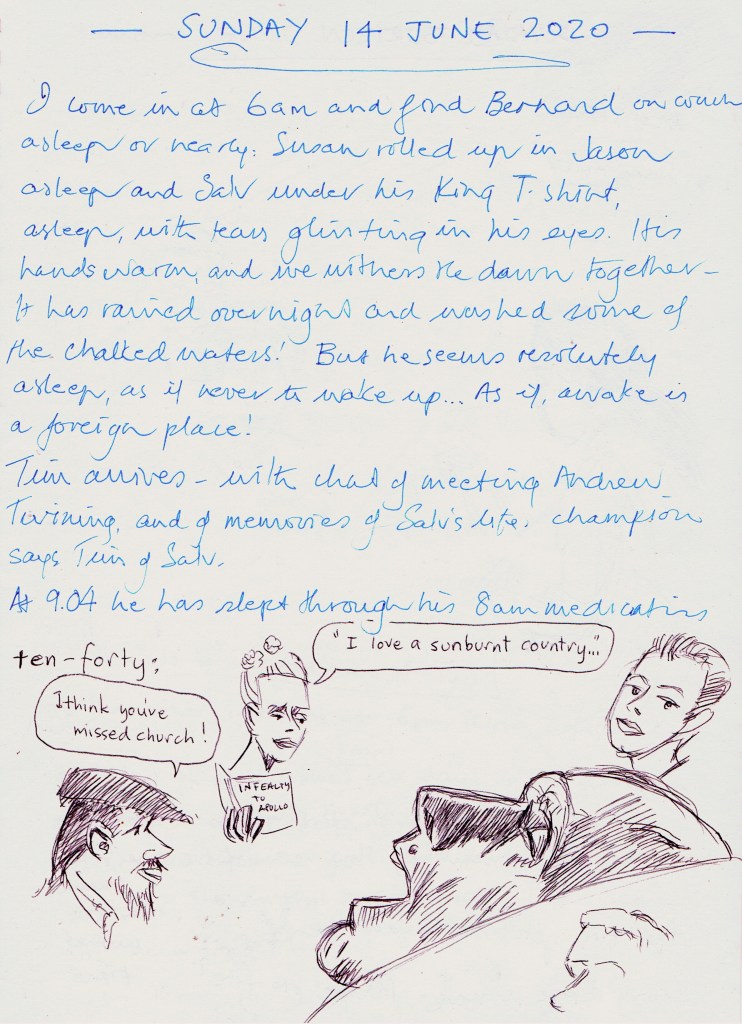 — SUNDAY 14 JUNE 2020 —
I come in at 6am and find Bernard on couch
asleep or nearly: Susan rolled up in Jason
asleep and Salv under his King T-shirt,
asleep, with tears glinting in his eyes. His
hands warm, and we witness the dawn together –
It has rained overnight and washed some of
the chalked waters! But he seems resolutely
asleep, as if never to wake up... As if, awake is
a foreign place!
Tim arrives – with chat of meeting Andrew
Twining, and of memories of Salv's life. champion
says Tim of Salv.
At 9.04 he has slept through his 8am medications
ten-forty:
"I love a sunburnt country..."
I think you've
missed church!
IN FEALTY
TO
APOLLO